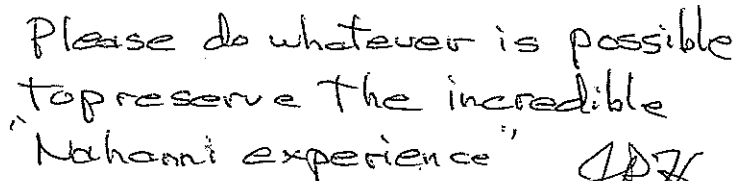 Please do whatever is possible
to preserve the incredible
"Nahanni experience"